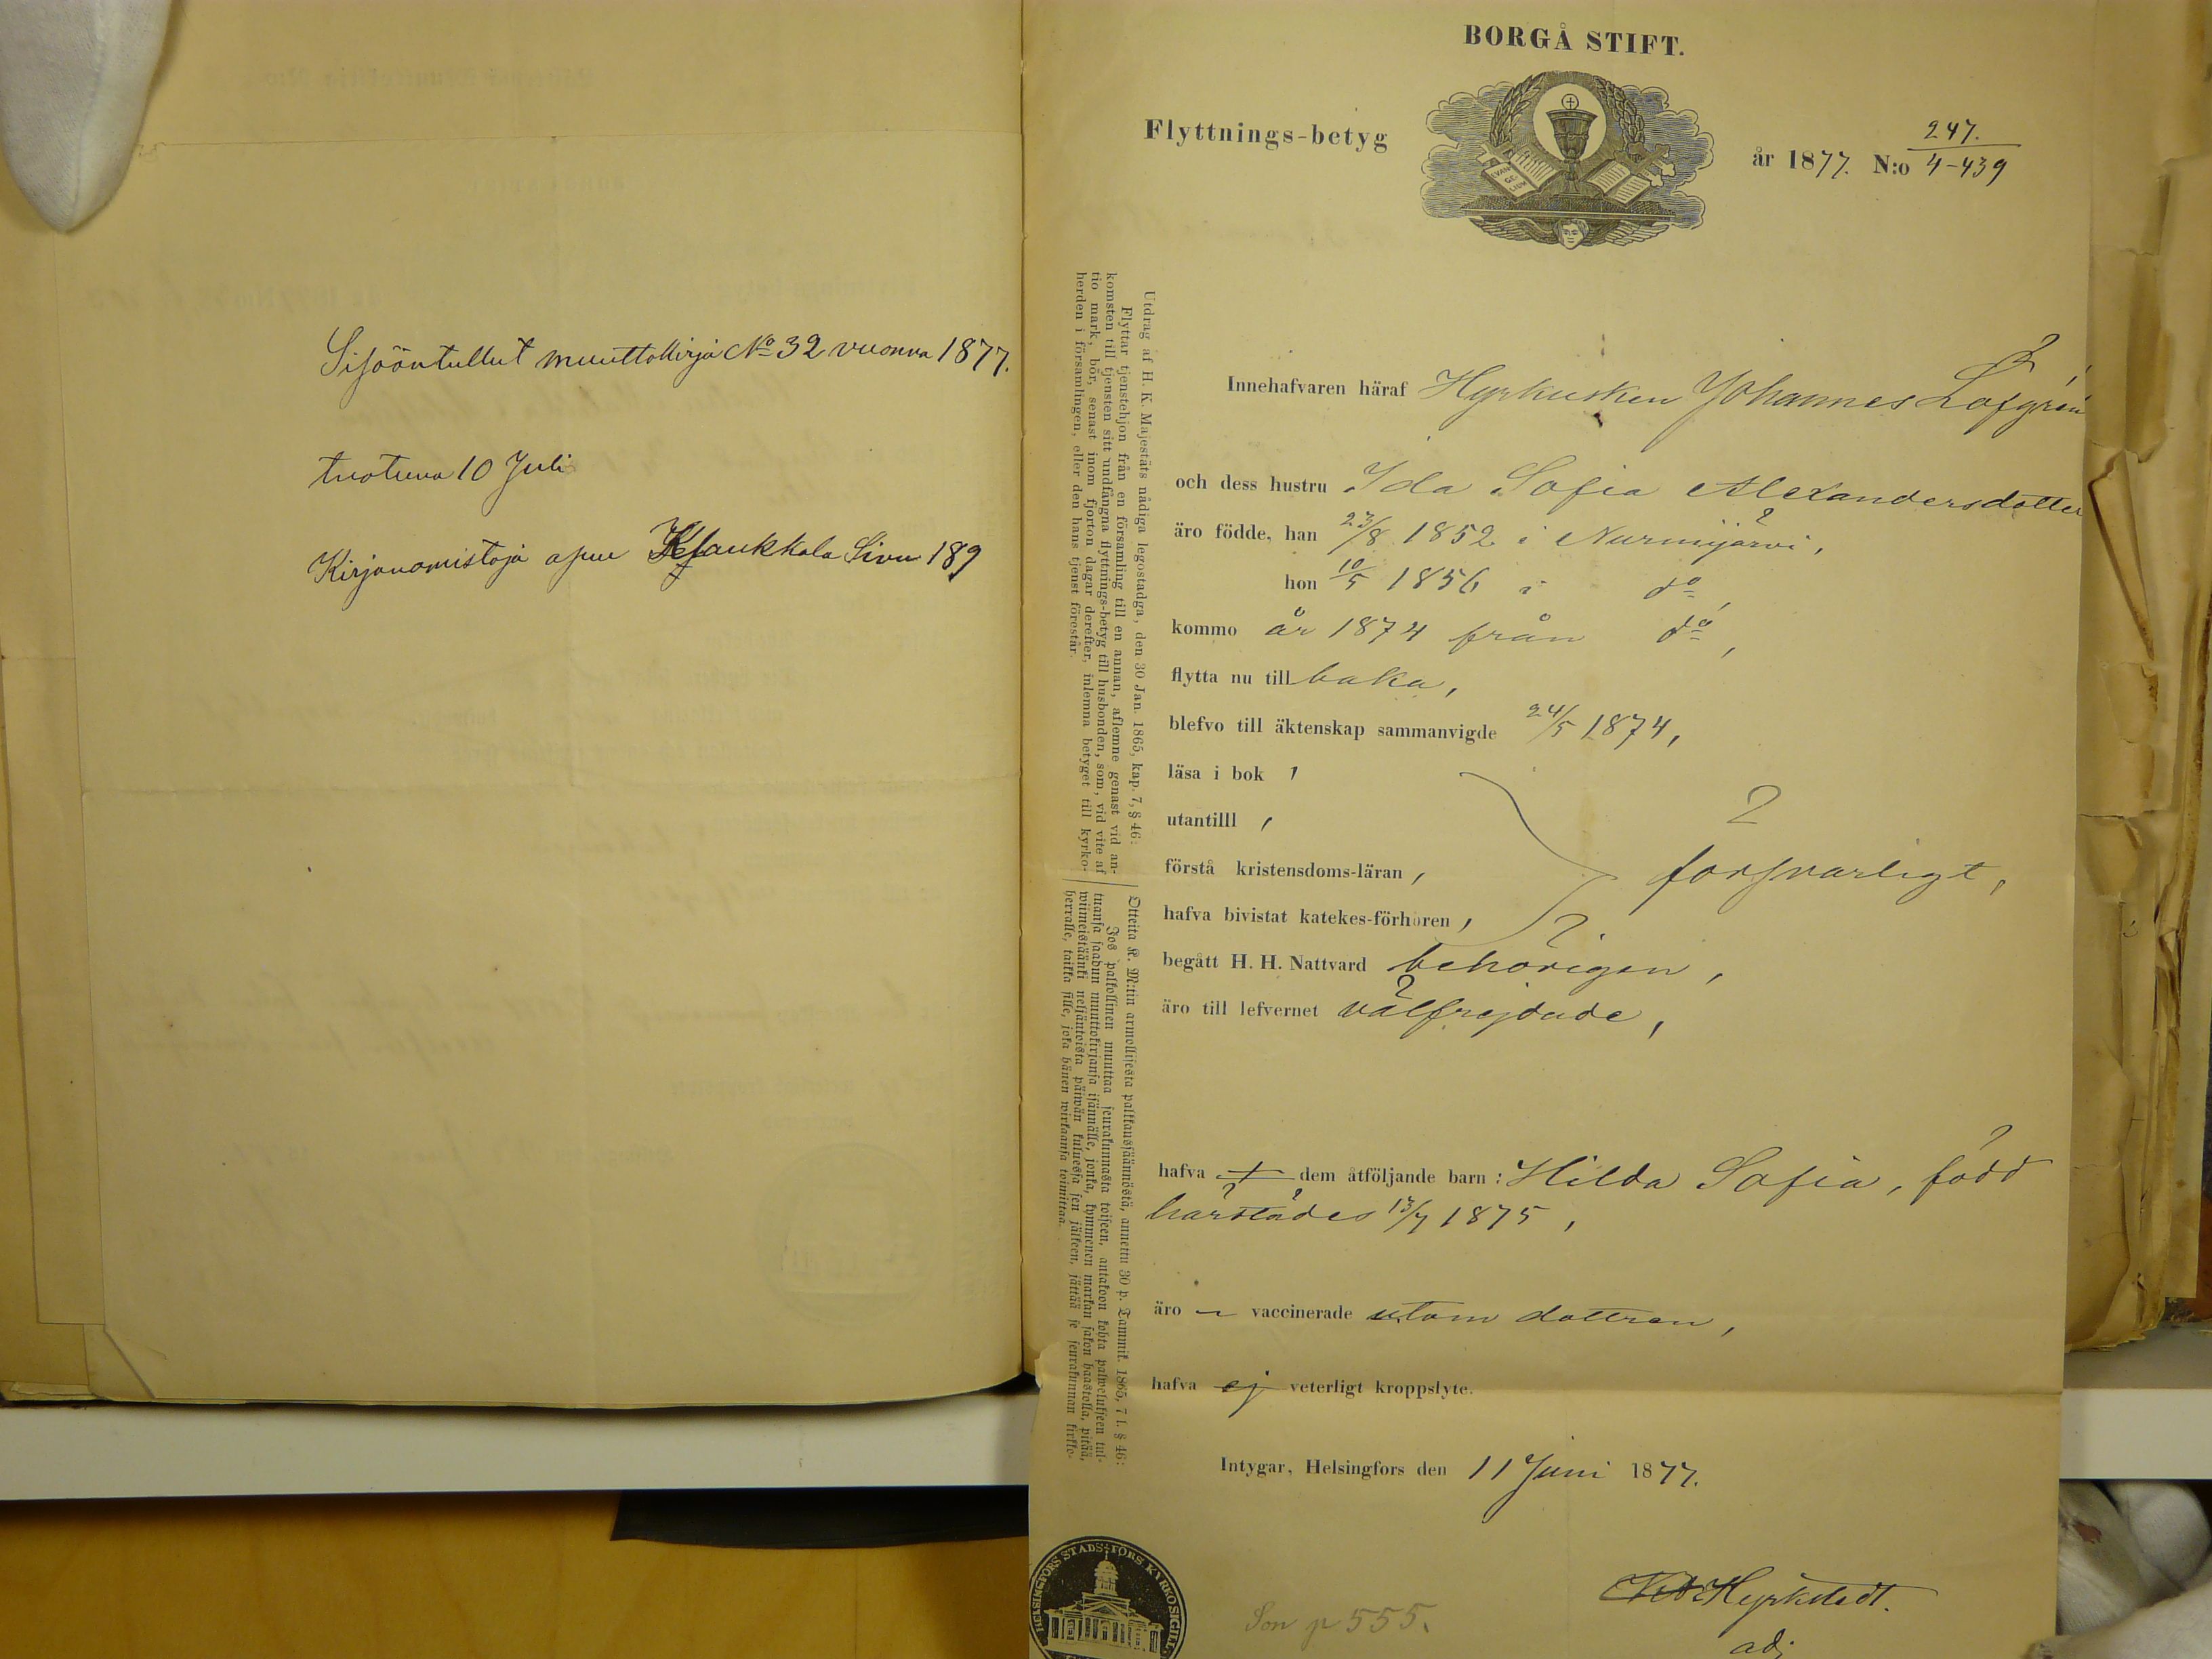 Sisääntullut muuttokirja No 32 vuonna 1877.
tuotuna 10 Juli
Kirjanomistaja apu Klaukkala Sivu 189
BORGÅ STIFT.
Flyttnings-betyg
EVAN
GE-
LIUM
år 1877. N:o 247.
4-439
Innehafvaren häraf Hyrkusken Johannes Löfgrén
och dess hustru Ida Sofia Alexandersdotter
äro födde, han 23/8 1852 i Nurmijärvi,
hon 10/5 1856 i do,
kommo år 1874 från do,
flytta nu till baka,
blefvo till äktenskap sammanvigde 24/5 1874,
läsa i bok,
utantilll,
förstå kristensdoms-läran, försvarligt,
hafva bivistat katekes-förhören,
begått H. H. Nattvard behörigen,
äro till lefvernet välfrejdade,
hafva dem åtföljande barn: Hilda Sofia, född
härstädes 13/7 1875,
äro vaccinerade utom dottren,
hafva ej veterligt kroppslyte.
Intygar, Helsingfors den 11 Juni 1877.
Hyrkstedt.
adj
Son p 555.
HELSINGFORS STADS FÖRS KYRKOSIGILL
Utdrag af H. K. Majestäts nådiga legostadga, den 30 Jan. 1865, kap. 7, § 46:
Flyttar tjenstehjon från en församling till en annan, aflemne genast vid an-
komsten till tjensten sitt undfångna flyttnings-betyg till husbonden, som, vid vite af
tio mark, bör, senast inom fjorton dagar derefter, inlemna betyget till kyrko-
herden i församlingen, eller den hans tjenst förestår.
Otteita K. M:tin armollisesta palkkaussäännöstä, annettu 30 p. Tammik. 1865, 7 l. § 46:
Jos palkollinen muuttaa seurakunnasta toiseen, antakoon kohta palwelukseen tul-
tuansa saadun muuttokirjansa isännälle, jonka, kymmenen markan sakon haastolla, pitää,
wiimeistäänki neljäntoista päiwän kuluessa sen jälkeen, jättää se seurakunnan kirkko-
herralle, taikka sille, joka hänen wirkaansa toimittaa.